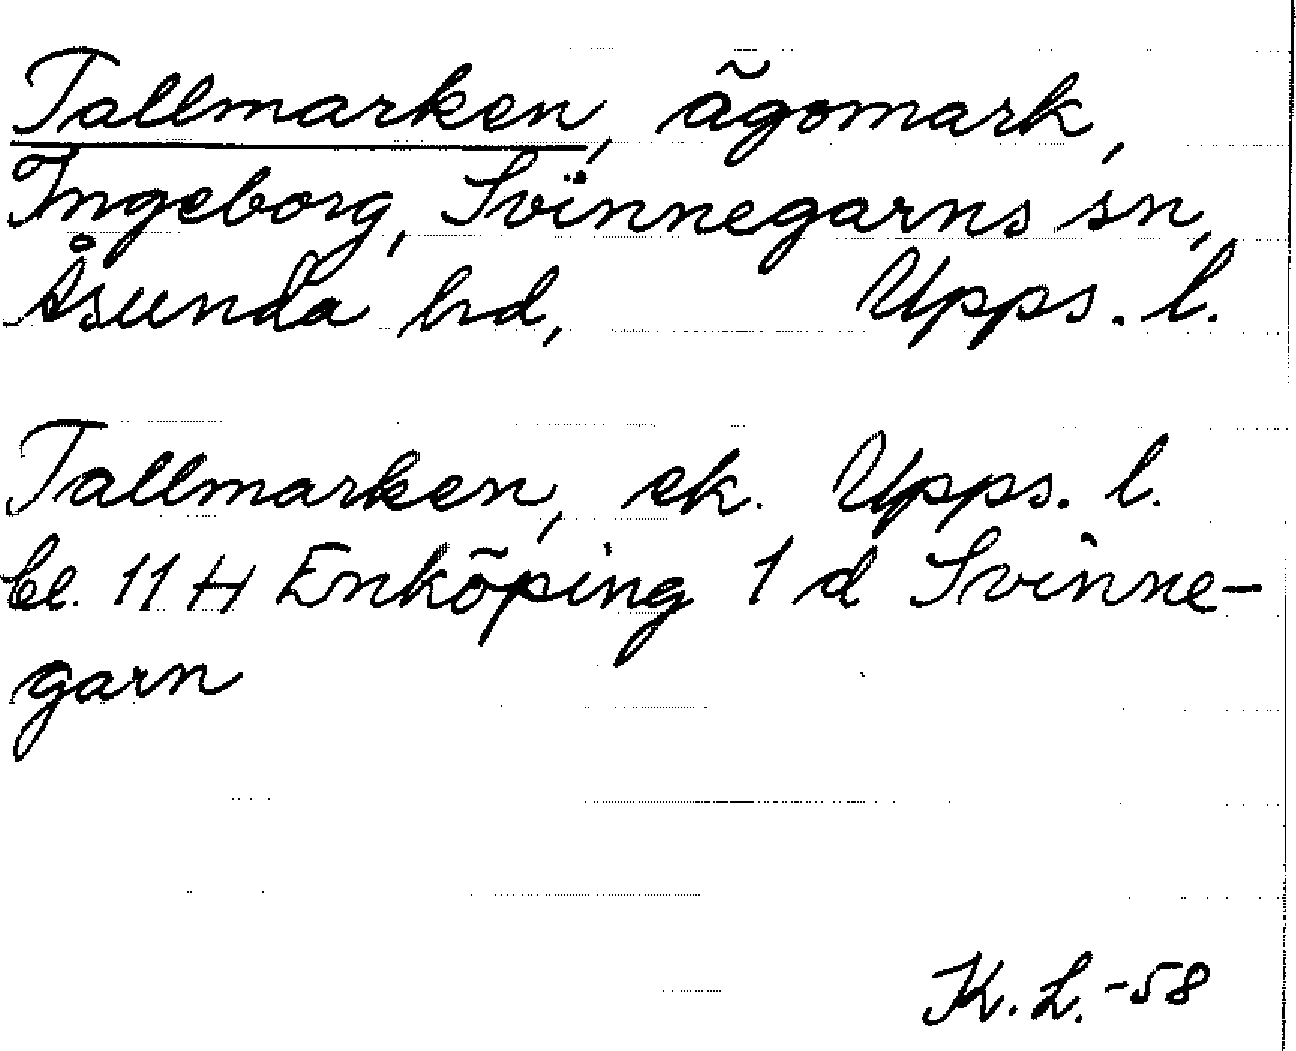 Tallmarken, ägomark,
Ingeborg, Svinnegarns sn,
Åsunda hd, Upps. l.
Tallmarken, ek. Upps. l.
bl. 11 H Enköping 1 d Svinne-
garn
K. L. -58